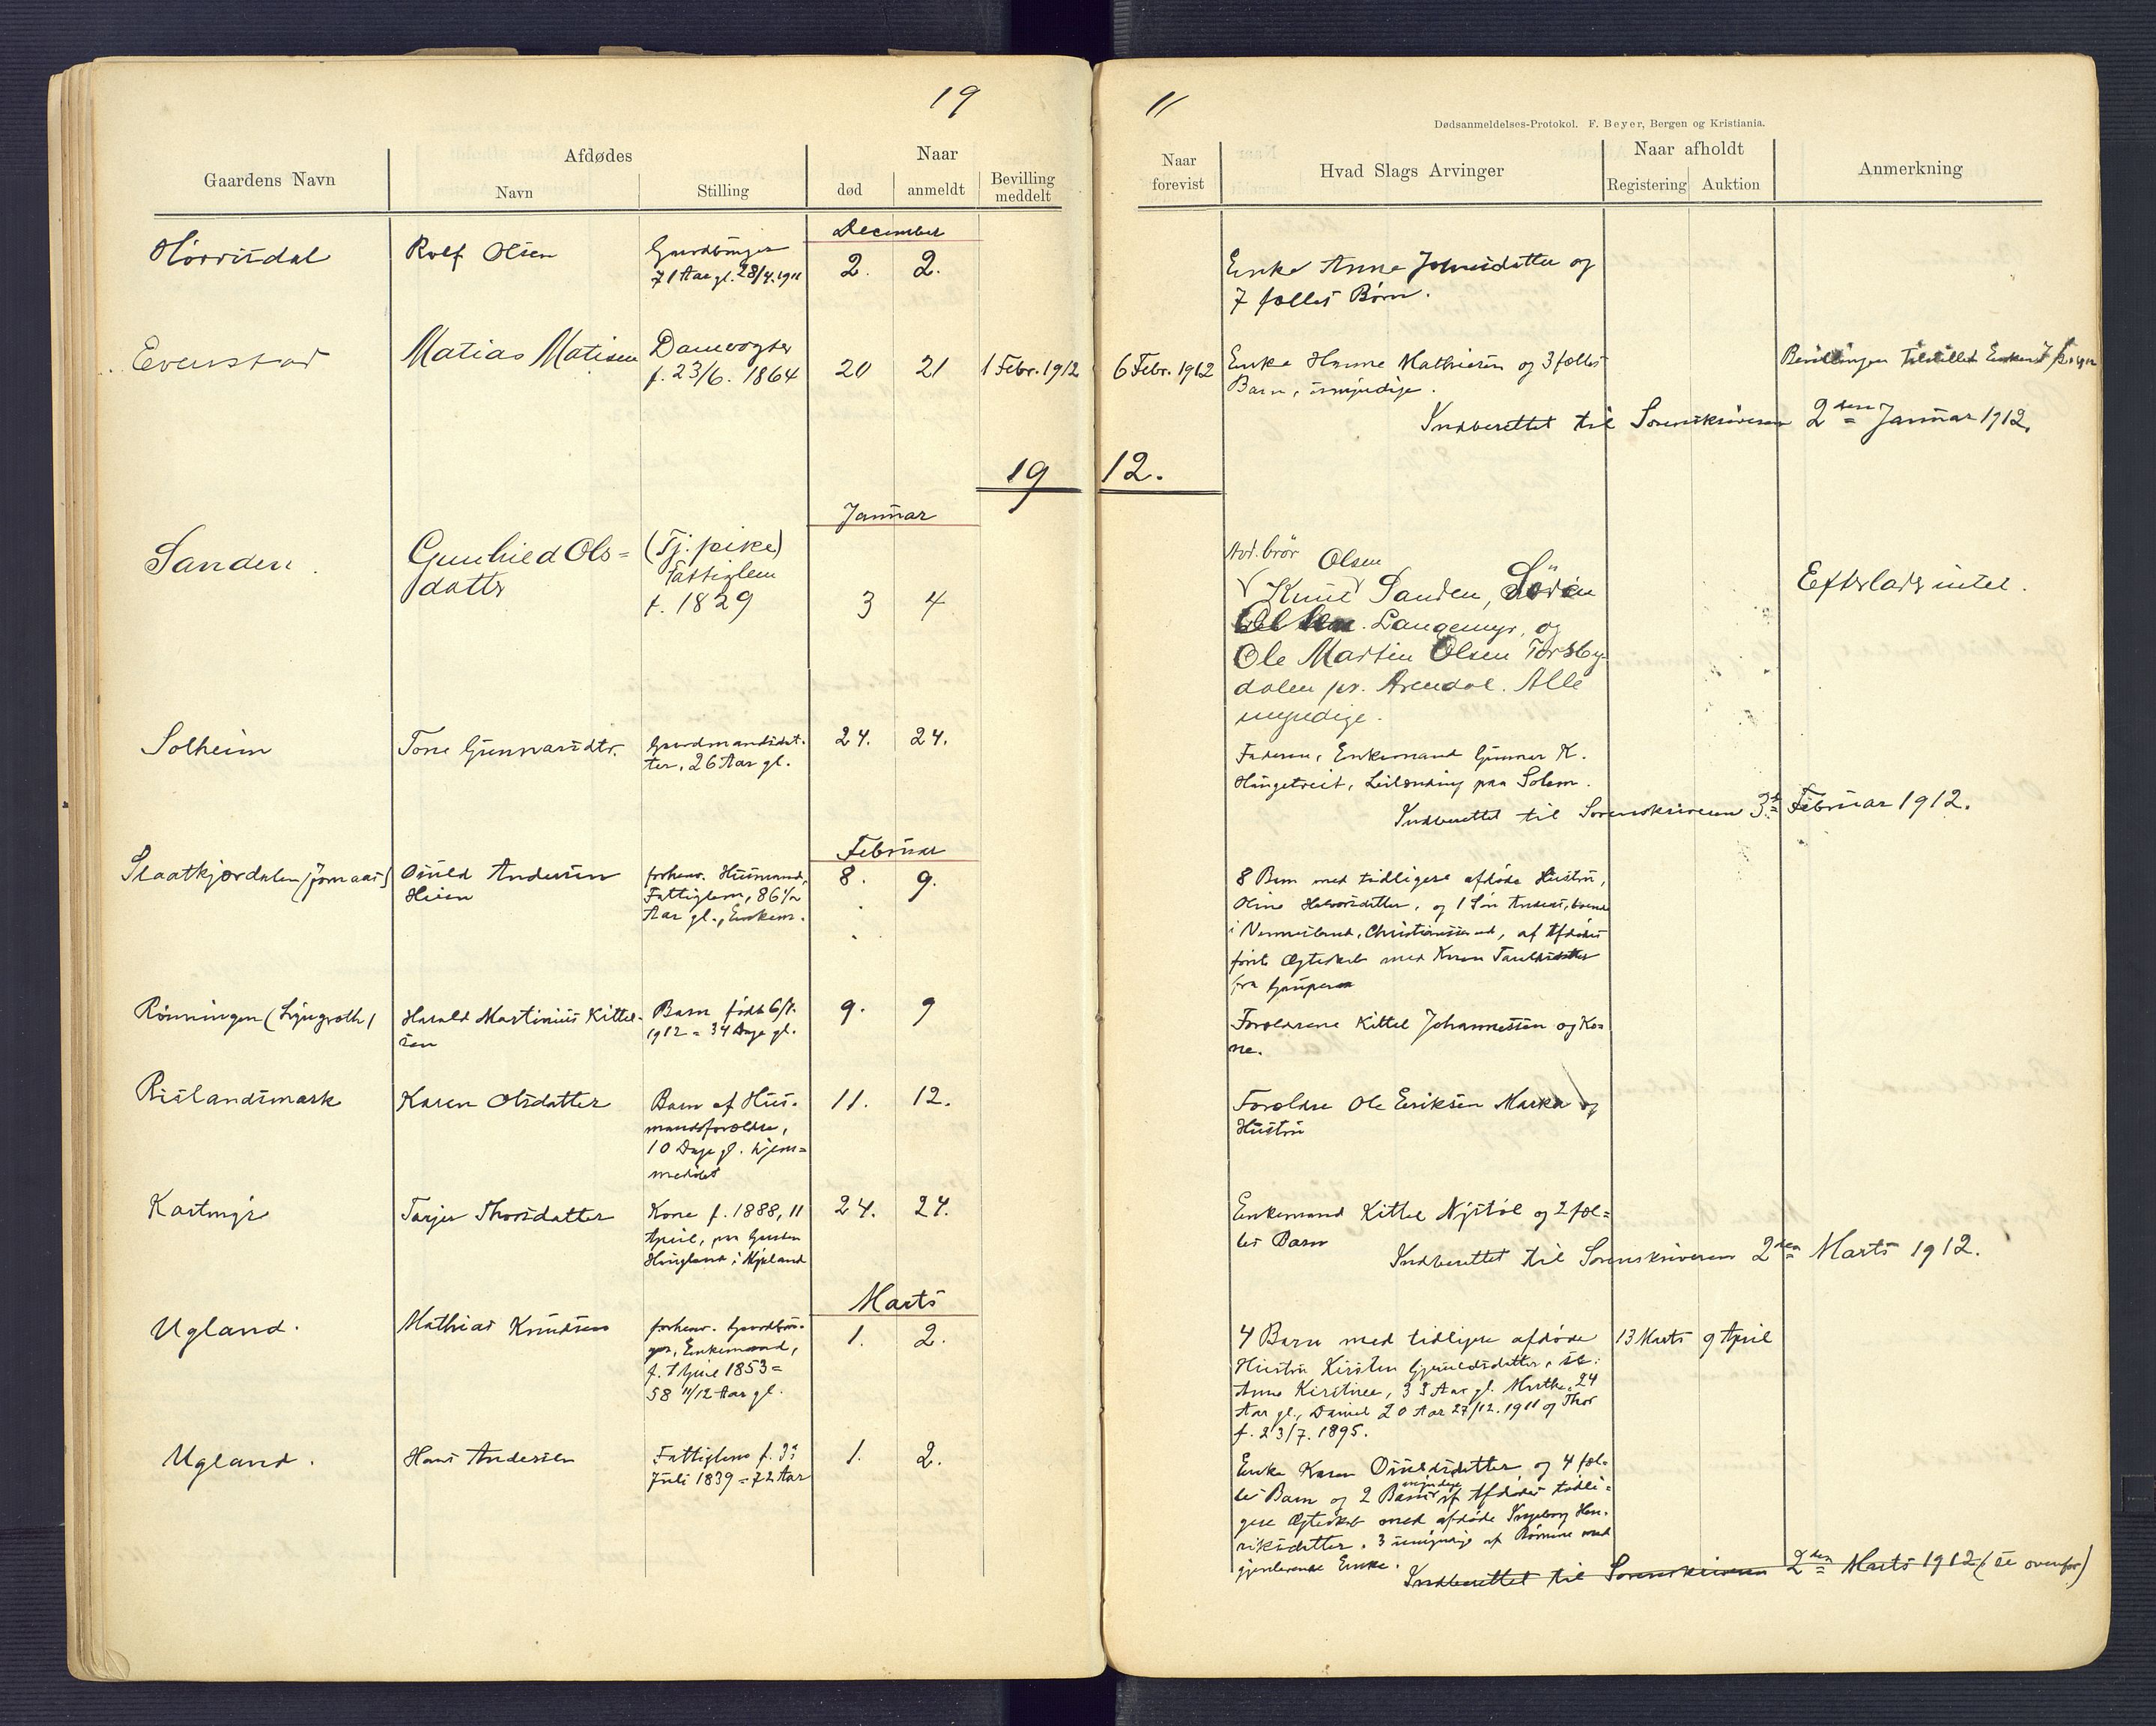 19
11
Dødsanmeldelses-Protokol. F. Beyer, Bergen og Kristiania.
Gaardens Navn
Afdødes
Navn
Stilling
Naar
død
anmeldt
Bevilling
meddelt
Naar
forevist
Hvad Slags Arvinger
Naar afholdt
Registering
Auktion
Anmerkning
December
Rolf Olsen
Gaardbruger
71 Aar gl. 28/4.1911
2.
2.
Enke Anne Johnsdatter og
7 fælles Børn.
Evenstad
Matias Matisen
Damvogter
f. 23/6. 1864
20
21
1 Febr. 1912
6 Febr. 1912
Enke Hanne Mathisen og 3 fælles
Barn, umyndige.
Bevillingen tilstillet Enken
Indberettet til Sorenskriveren 2den Januar 1912.
19
12.
Januar
Sanden
Gunhild Ols=
datter
(Tj. pike)
Fattiglem
f. 1829
3
4
Avd. brør Olsen
Knud Sanden, Søren
Langemyr, og
Ole Martin Olsen Torsby-
dalen pr. Arendal. Alle
myndige.
Efterlads intet.
Solheim
Tone Gunnarsdtr.
Gaardmandsdat-
ter, 26 Aar gl.
24.
24.
Faderen, Enkemand Gunnar K.
Haugetveit, Leilænding paa Solem.
Indberettet til Sorenskriveren 3d Februar 1912.
Februar
Slaatkjærdalen (Jomaas)
Osuld Andersen
Heien
forhenv. Husmand,
Fattiglem, 86 1/2
Aar gl., Enkem.
8.
9.
8 Barn med tidligere afdøde Hustru,
Oline Halvorsdatter, og 1 Søn Anders, boende
i Vennesland, Christianssand, af Afdødes
første Ægteskab med Karen
fra
Rønningen (Lyngroth)
Harald Martinius Kittel-
sen
Barn født 6/1.
1912 = 34 Dage gl.
9.
9
Forældrene Kittel Johannessen og Ko-
ne.
Rislandsmark
Karen Olsdatter
Barn af Hus-
mandsforældre,
10 Dage gl. hjem=
medøbt
11.
12.
Forældre Ole Eriksen Marka og
Hustru
Kartmyr
Tarjer Thorsdatter
Kone f. 1888, 11
April, paa Gaarden
Haugland i Mykland
24.
24.
Enkemand Kittel Nystøl og 2 fæl=
les Barn
Indberettet til Sorenskriveren 2den Marts 1912.
Marts
Ugland.
Mathias Knudsen
forhenv. Gaardbru-
ger, Enkemand,
f. April 1853=
58 11/12 Aar gl.
1.
2.
4 Barn med tidligere afdøde
Hustru Kirsten Gjeruldsdatter, se:
Anne Kirstine, 33 Aar gl. Marthe, 24
Aar gl., Daniel 20 Aar 27/12. 1911 og Thor
f. 23/7. 1895.
13 Marts
9 April
Ugland.
Hans Andersen
Fattiglem f. 3
Juli 1839 = 72 Aar
1.
2.
Enke Karen Osuldsdatter og 4 fæl-
les Barn og 2 myndige Barn af Afdødes tidli=
gere Ægteskab med afdøde Ingeborg Hen-
riksdatter. 3 umyndige af Børnene med
gjenlevende Enke.
Indberettet til Sorenskriveren 2den Marts 1912 (se ovenfor)